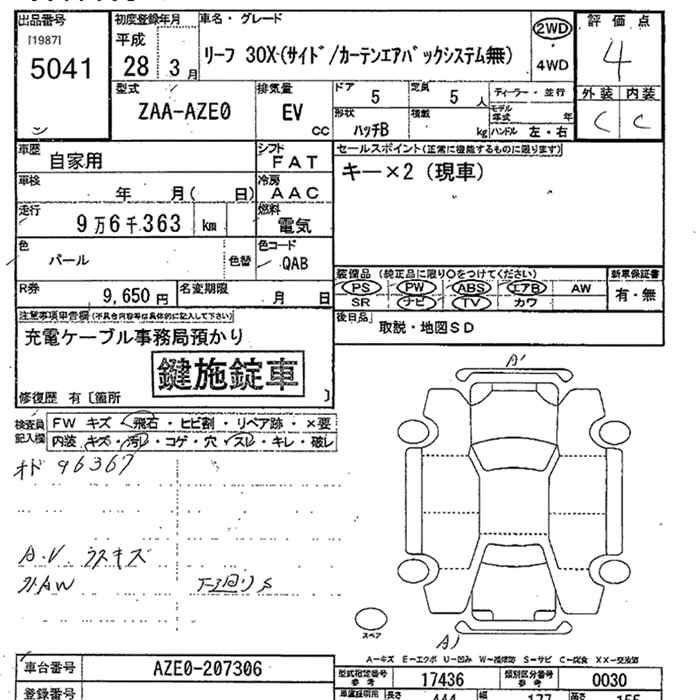 出品番号 初度登録年月 車名・グレード 評価点
[1987]
5041
平成
28 3月
リーフ 30X(サイド/カーテンエアバックシステム無)
2WD
4WD
4
型式
ZAA-AZE0
排気量
EV
CC
ドア
5
定員
5人
形状
ハッチB
積載
kg
ディーラー・並行
モデル年式 年
ハンドル 左・右
外装 内装
C C
車歴
自家用
シフト
FAT
車検
年 月( 日)
冷房
AAC
走行
9万6千363 km
燃料
電気
色
パール
色替
色コード
QAB
R券
9,650円
名変期限
月 日
セールスポイント(正常に機能するものに限ります)
キー×2(現車)
装備品 (純正品に限り○をつけてください)
PS PW ABS エアB AW
SR ナビ TV カワ
新車保証書
有・無
後日品
取説・地図SD
注意事項申告欄(不具合内容等は具体的に記入して下さい)
充電ケーブル事務局預かり
鍵施錠車
修復歴 有〔箇所 〕
検査員記入欄
FW キズ・飛石・ヒビ割・リペア跡・×要
内装・キズ・汚レ・コゲ・穴・スレ・キレ・破レ
オド 96367
A.V ウスキズ
A'
スペア
A-キズ E-エクボ U-凹み W-補修跡 S-サビ C-腐食 XX-交換済
車台番号
AZE0-207306
登録番号
型式指定番号
参考
17436
類別区分番号
参考
0030
長さ 444 幅 177 高さ 155